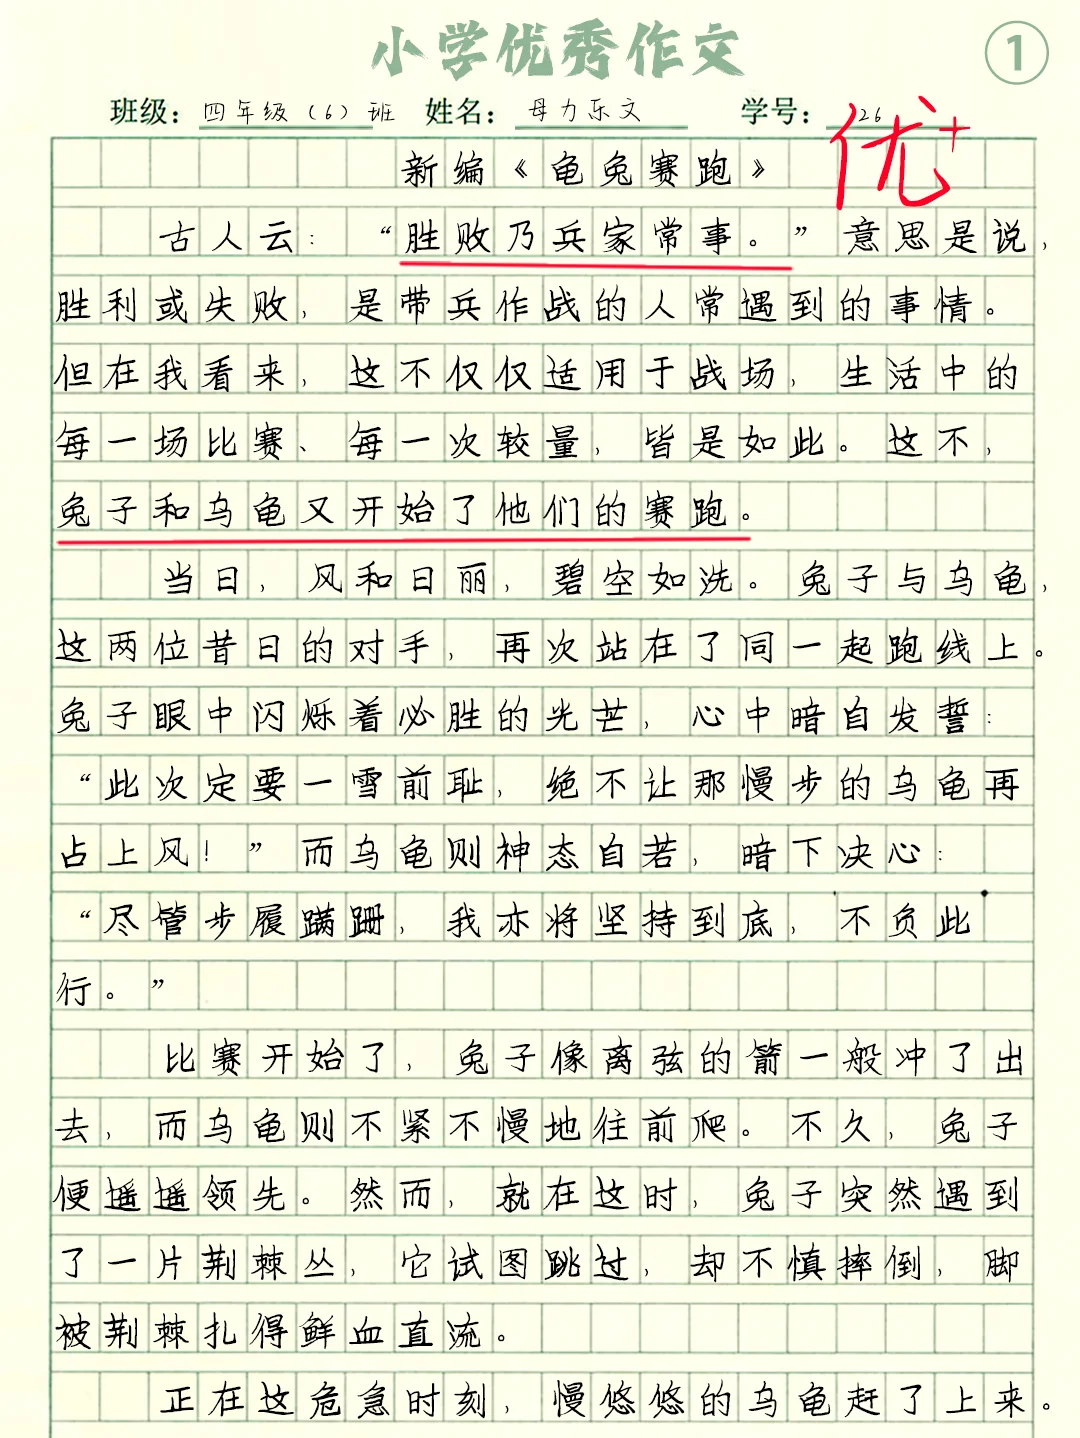 小学优秀作文
1
班级：四年级（6）班 姓名：母力乐文 学号：26
优+
新编《龟兔赛跑》
古人云：“胜败乃兵家常事。”意思是说，
胜利或失败，是带兵作战的人常遇到的事情。
但在我看来，这不仅仅适用于战场，生活中的
每一场比赛、每一次较量，皆是如此。这不，
兔子和乌龟又开始了他们的赛跑。
当日，风和日丽，碧空如洗。兔子与乌龟，
这两位昔日的对手，再次站在了同一起跑线上。
兔子眼中闪烁着必胜的光芒，心中暗自发誓：
“此次定要一雪前耻，绝不让那慢步的乌龟再
占上风！”而乌龟则神态自若，暗下决心：
“尽管步履蹒跚，我亦将坚持到底，不负此
行。”
比赛开始了，兔子像离弦的箭一般冲了出
去，而乌龟则不紧不慢地往前爬。不久，兔子
便遥遥领先。然而，就在这时，兔子突然遇到
了一片荆棘丛，它试图跳过，却不慎摔倒，脚
被荆棘扎得鲜血直流。
正在这危急时刻，慢悠悠的乌龟赶了上来。